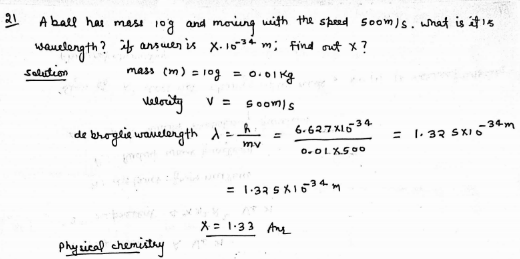 21 A ball has mass 10g and moving with the speed 500m/s. what is it's
wavelength? if answer is X.10^-34 m; Find out X?
Solution mass (m) = 10g = 0.01Kg
Velocity V = 500m/s
de broglie wavelength λ = h/mv = 6.627X10^-34/0.01X500 = 1.325X10^-34m
= 1.325X10^-34 m
X = 1.33 Ans
Physical chemistry